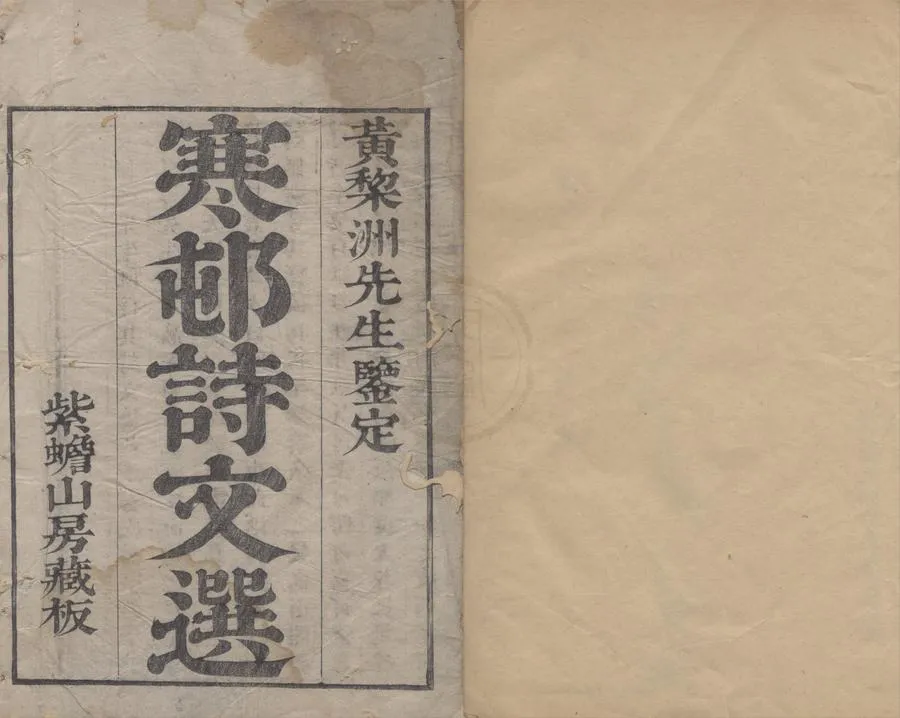 黃棃洲先生鑒定
寒邨詩文選
紫蟾山房藏板